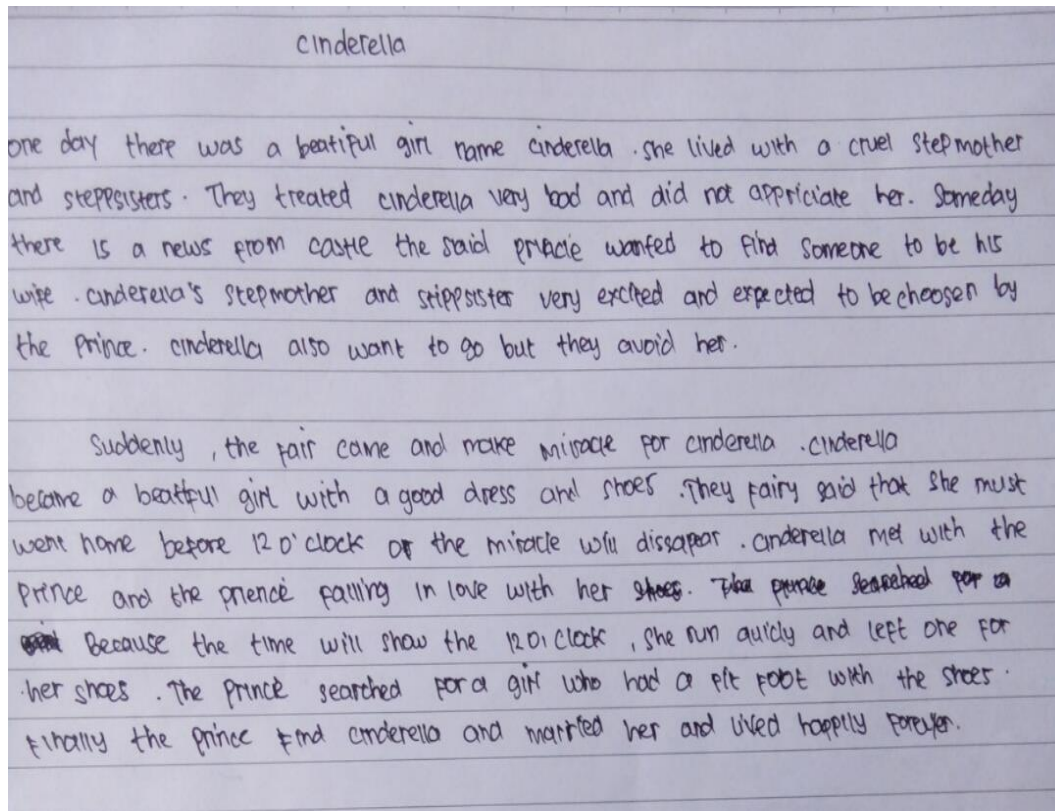 cinderella
one day there was a beatiful girl name cinderella . she lived with a cruel stepmother
and steppsisters . They treated cinderella very bad and did not appriciate her. Someday
there is a news from castle the said princie wanted to find someone to be his
wife . cinderella's stepmother and stippsister very excited and expected to be choosen by
the Prince. cinderella also want to go but they avoid her.
Suddenly , the fair came and make miracle for cinderella . cinderella
became a beatiful girl with a good dress and shoes . They fairy said that she must
went home before 12 o'clock or the miracle will dissapar . cinderella met with the
Prince and the prience falling in love with her shoes. The prince searched for a
Because the time will show the 12 O'clock , she run quicly and left one for
her shoes . The prince searched for a girl who had a fit foot with the shoes .
Finally the prince find cinderella and married her and lived happily forever.